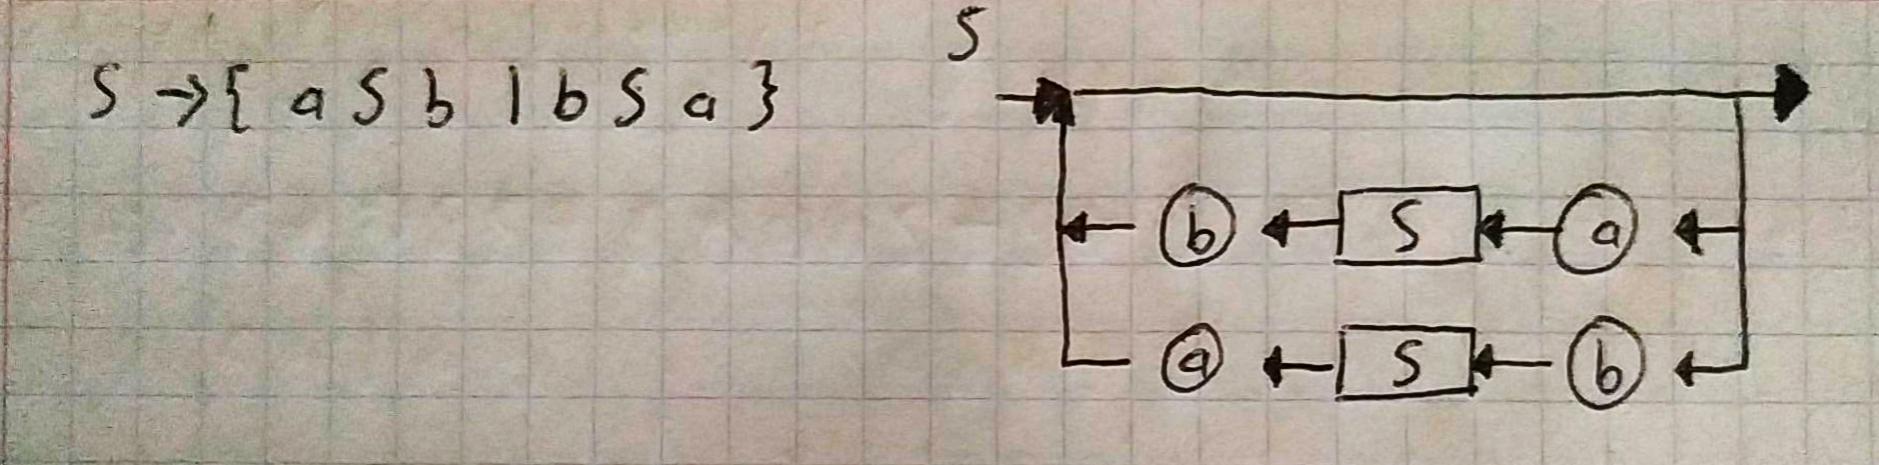 S
S → { a S b | b S a }
b S a
a S b